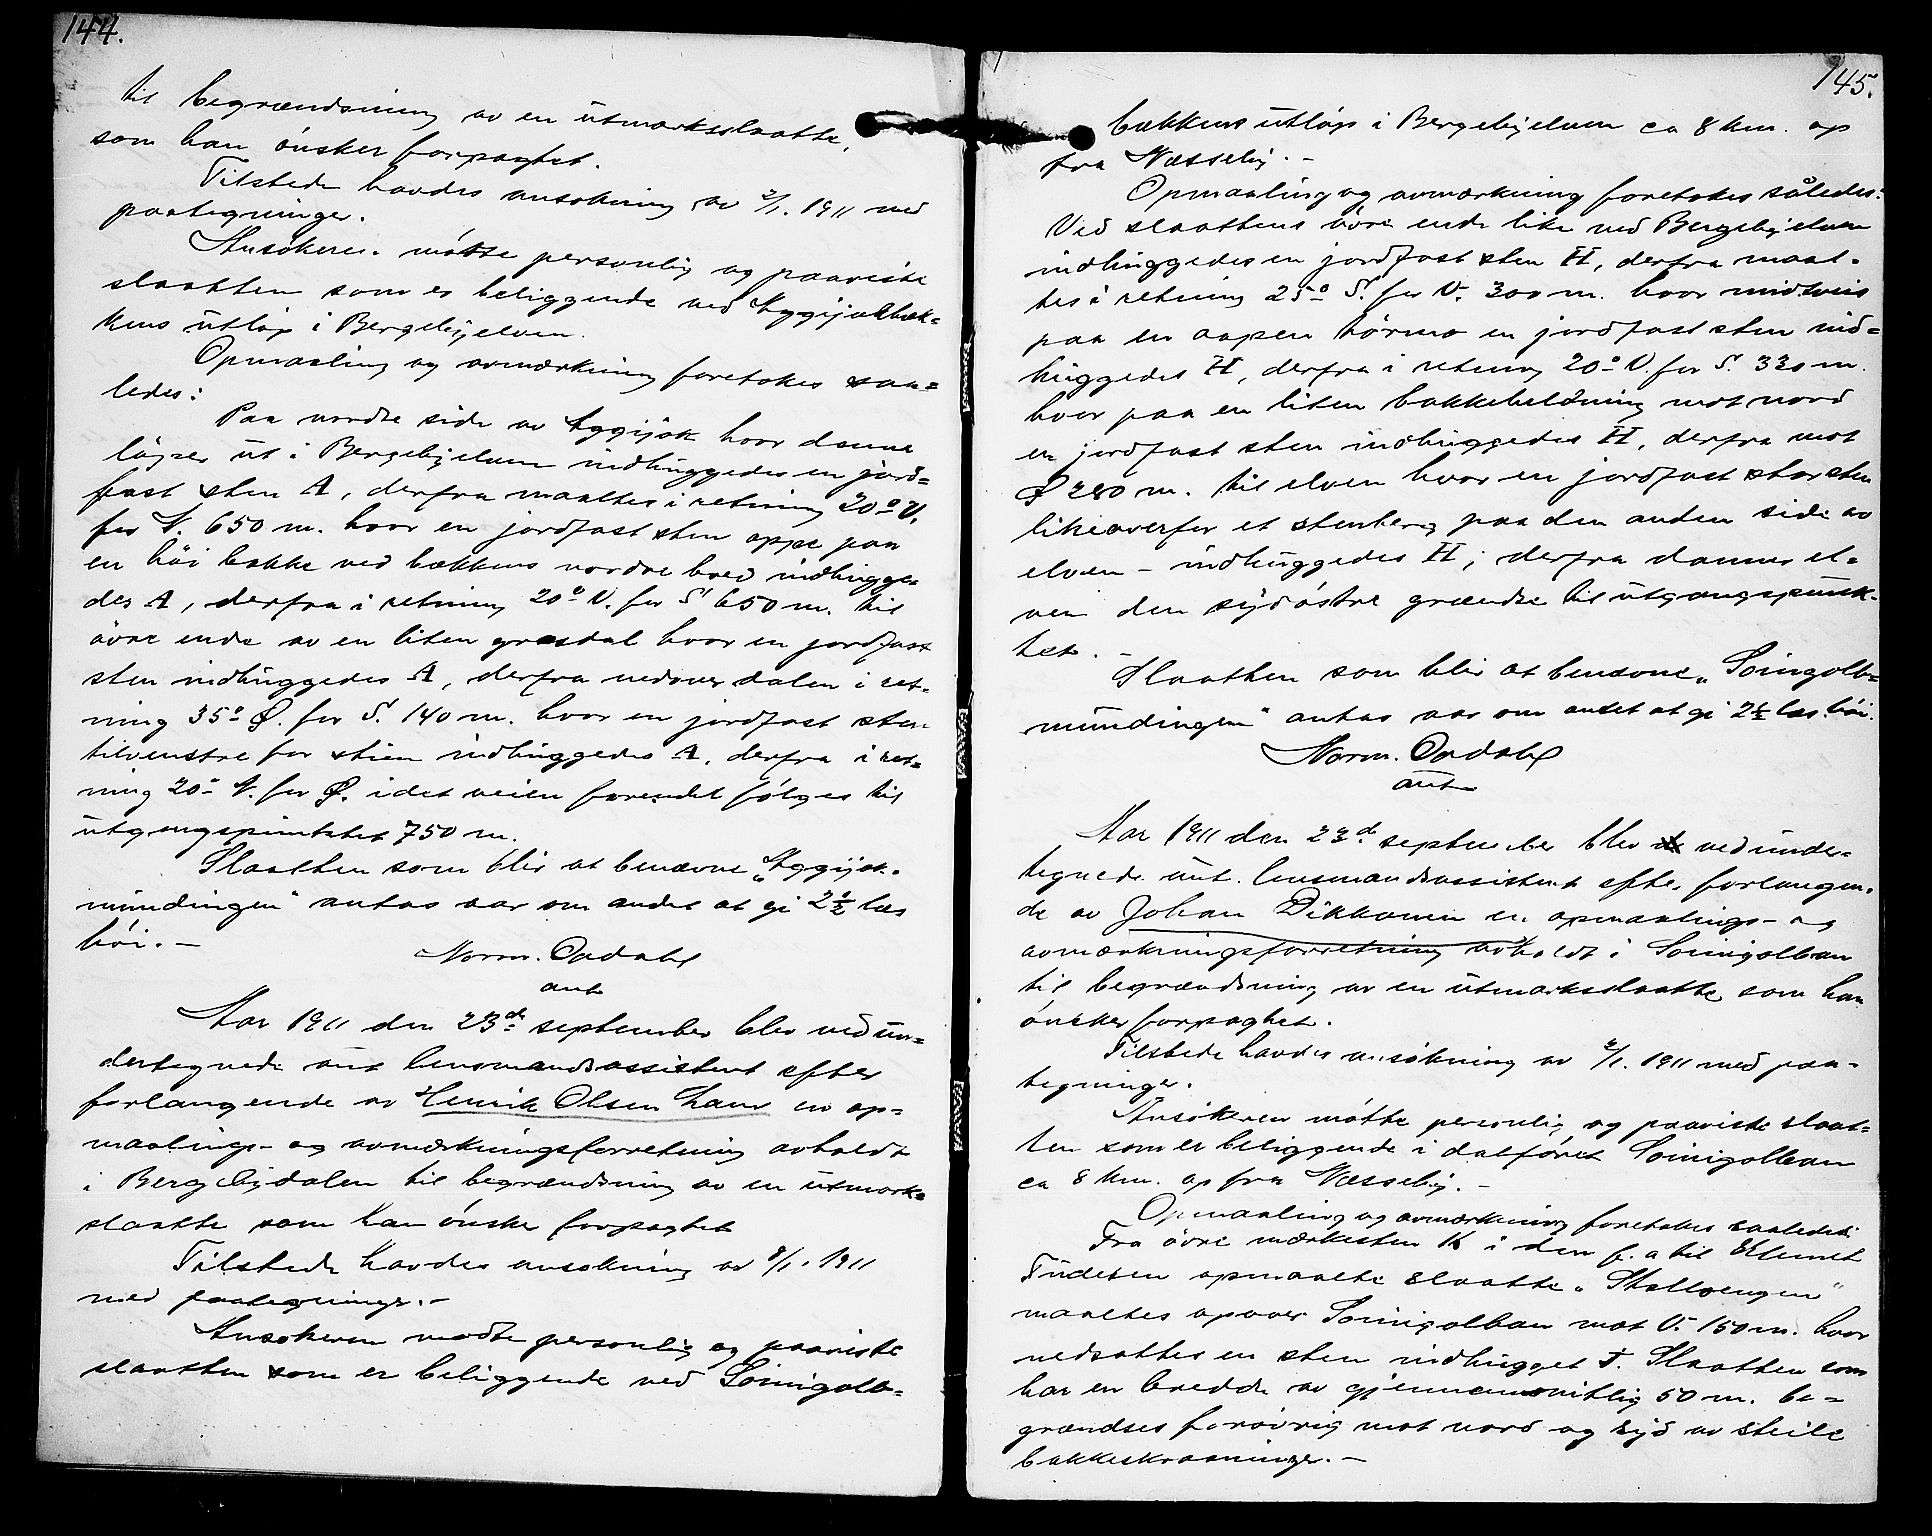 144.
til begrændsning av en ütmarksslaatte,
som han ønsker forpagtet.
Tilstede havdes ansøkning av 2/1. 1911 med
paategninger.
Ansøkeren møtte personlig og paaviste
slaatten som er beliggende ved Aggijokbæk=
kens ütløp i Bergebyelven.
Opmaaling og avmærkning foretokes saa=
ledes:
Paa nordre side av Aggijok hvor denne
løper üt i Bergebyelven indhüggedes en jord=
fast sten A, derfra maaltes i retning 20° V.
for N. 650 m. hvor en jordfast sten oppe paa
en høi bakke ved bækkens nordre bred indhügge=
des A, derfra i retning 20° V. for S 650 m. til
øvre ende av en liten græsdal hvor en jordfast
sten indhüggedes A, derfra nedover dalen i ret=
ning 35° Ø. for S. 140 m. hvor en jordfast sten
tilvenstre for stien indhüggedes A, derfra i ret=
ning 20° N. for Ø. idet veien forendel følges til
ütgangspünktet 750 m.
Slaatten som blir at benævne „Aggijok-
mündingen" antas aar om andet at gi 2½ læs
høi. —
Norm. Opdahl
aut
Aar 1911 den 23de september blev ved ün=
dertegnede aut lensmandsassistent efter
forlangende av Henrik Olsen Lans en op=
maalings- og avmærkningsforretning avholdt
i Bergebydalen til begrændsning av en ütmark=
slaatte som han ønsker forpagtet
Tilstede havdes ansøkning av 9/1. 1911
med paategninger. —
Ansøkeren mødte personlig og paaviste
slaatten som er beliggende ved Soinigolb=
145.
bækkens ütløp i Bergebyelven ca 8 km. op
fra Næsseby. —
Opmaaling og avmærkning foretokes således:
Ved slaattens øvre ende like ved Bergebyelven
indhüggedes en jordfast sten H, derfra maal=
tes i retning 25° S. for V. 300 m. hvor midtveis
paa en aapen tørmo en jordfast sten ind=
hüggedes H, derfra i retning 20° V. for S. 330 m.
hvor paa en liten bakkeheldning mot nord
en jordfast sten indhüggedes H, derfra mot
Ø 280 m. til elven hvor en jordfast stor sten
likeoverfor et stenberg paa den anden side av
elven — indhüggedes H; derfra danner el=
ven den sydøstre grændse til ütgangspünk=
tet. —
Slaatten som blir at benævne „Soinigolb=
mündingen" antas aar om andet at gi 2½ læs høi.
Norm. Opdahl
aut
Aar 1911 den 23de september blev ved ünder=
tegnede aut. lensmandsassistent efter forlangen=
de av Johan Dikkanen en opmaalings- og
avmærkningsforretning avholdt i Soinigolban
til begrændsning av en ütmarksslaatte som han
ønsker forpagtet.
Tilstede havdes ansøkning av 2/1. 1911 med paa=
tegninger.
Ansøkeren møtte personlig og paaviste slaat=
ten som er beliggende i dalføret Soinigolban
ca 8 km. op fra Næsseby. —
Opmaaling og avmærkning foretokes saaledes:
Fra øvre mærkesten K i den f. a til Klemet
Tüdesen opmaalte slaatte „Stalloengen"
maaltes opover Soinigolban mot V. 150 m. hvor
nedsattes en sten indhügget I. Slaatten som
har en bredde av gjennemsnitlig 50 m. be=
grændses forøvrig mot nord og syd av steile
bakkeskraaninger. —